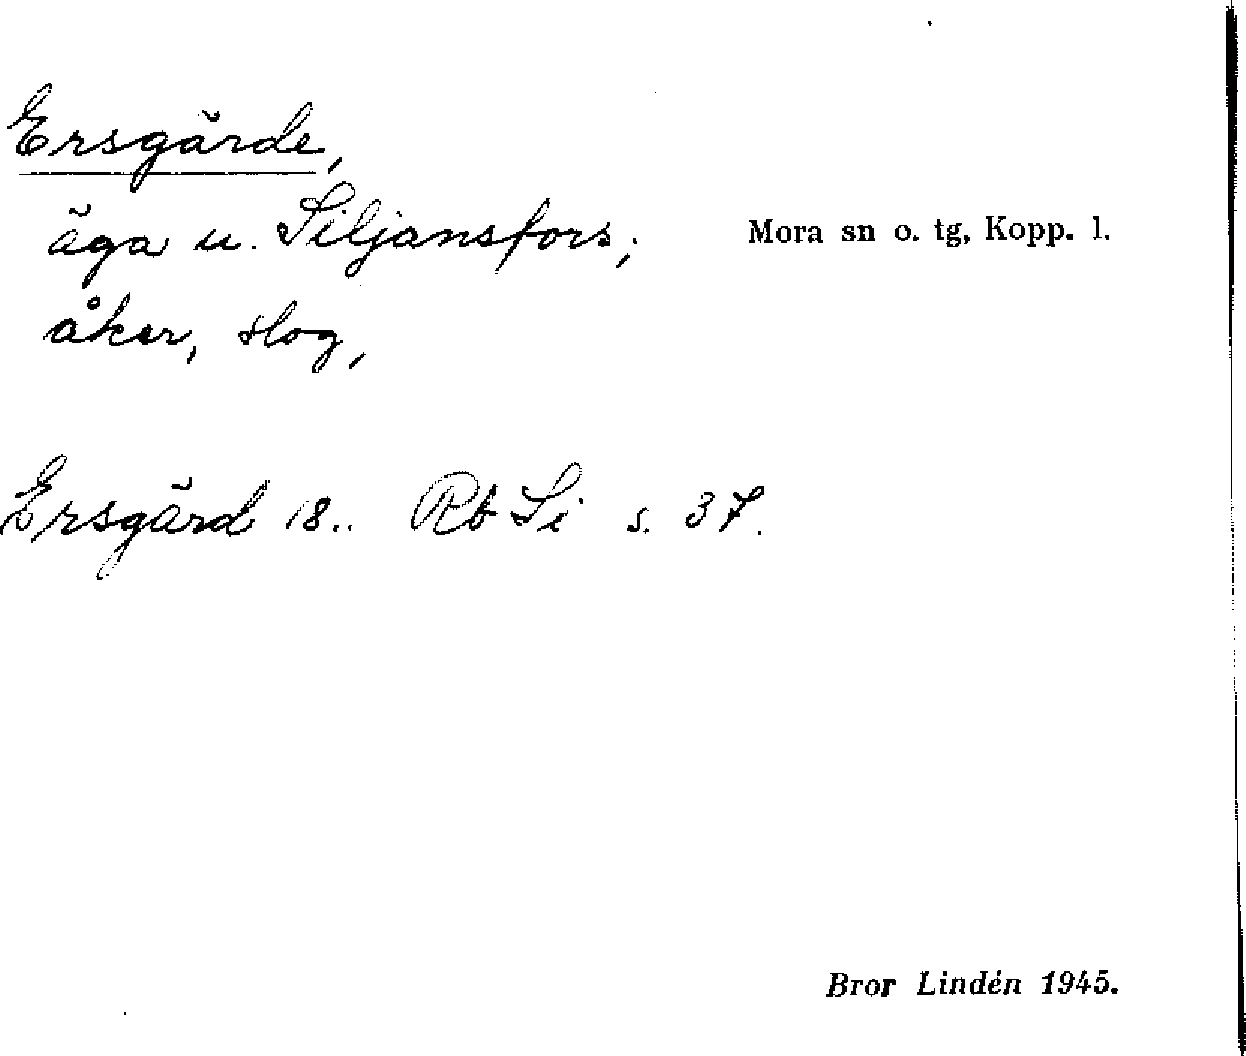 Ersgärde,
äga u. Siljansfors;
Mora sn o. tg, Kopp. l.
åker, slog,
Ersgärd 18.. Rb Si s. 37.
Bror Lindén 1945.